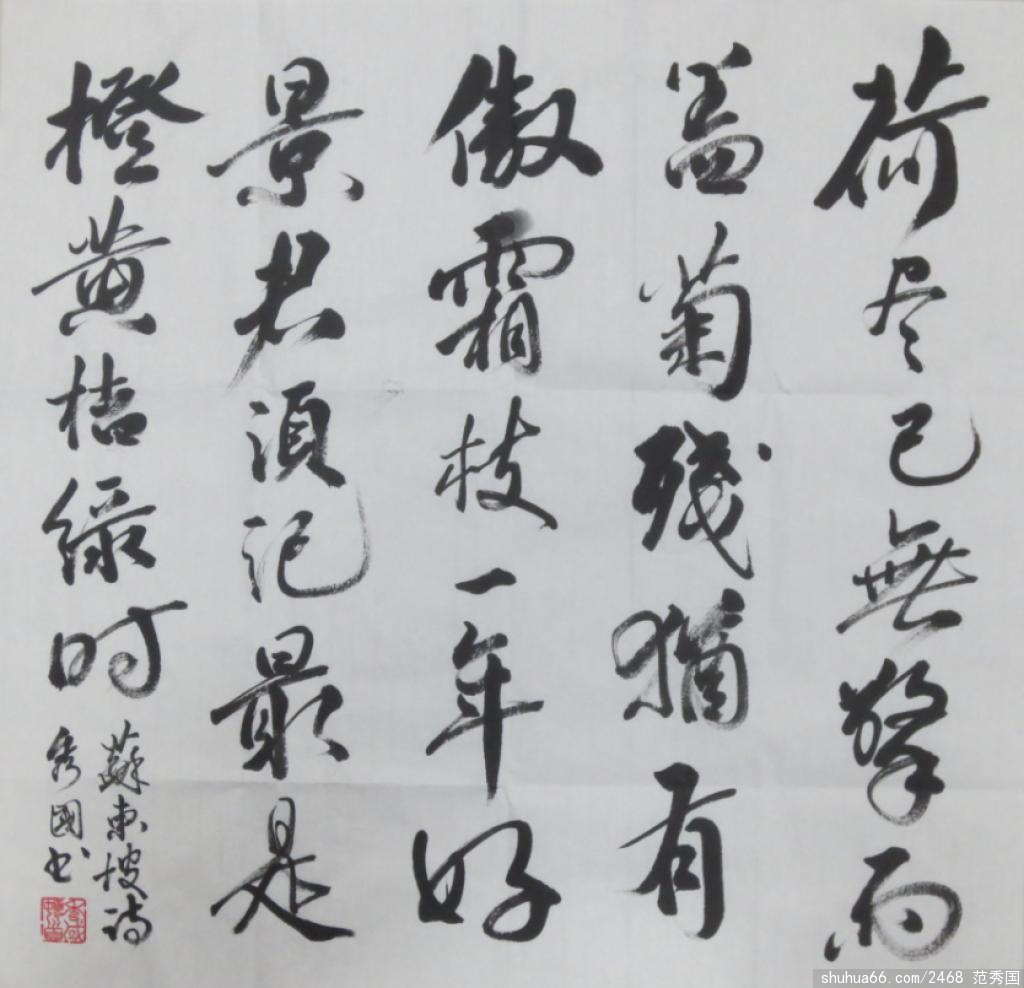 荷尽已無擎雨
盖菊残猶有
傲霜枝一年好
景君須记最是
橙黄桔绿时
蘇東坡诗
秀國书
shuhua66.com/2468 范秀国